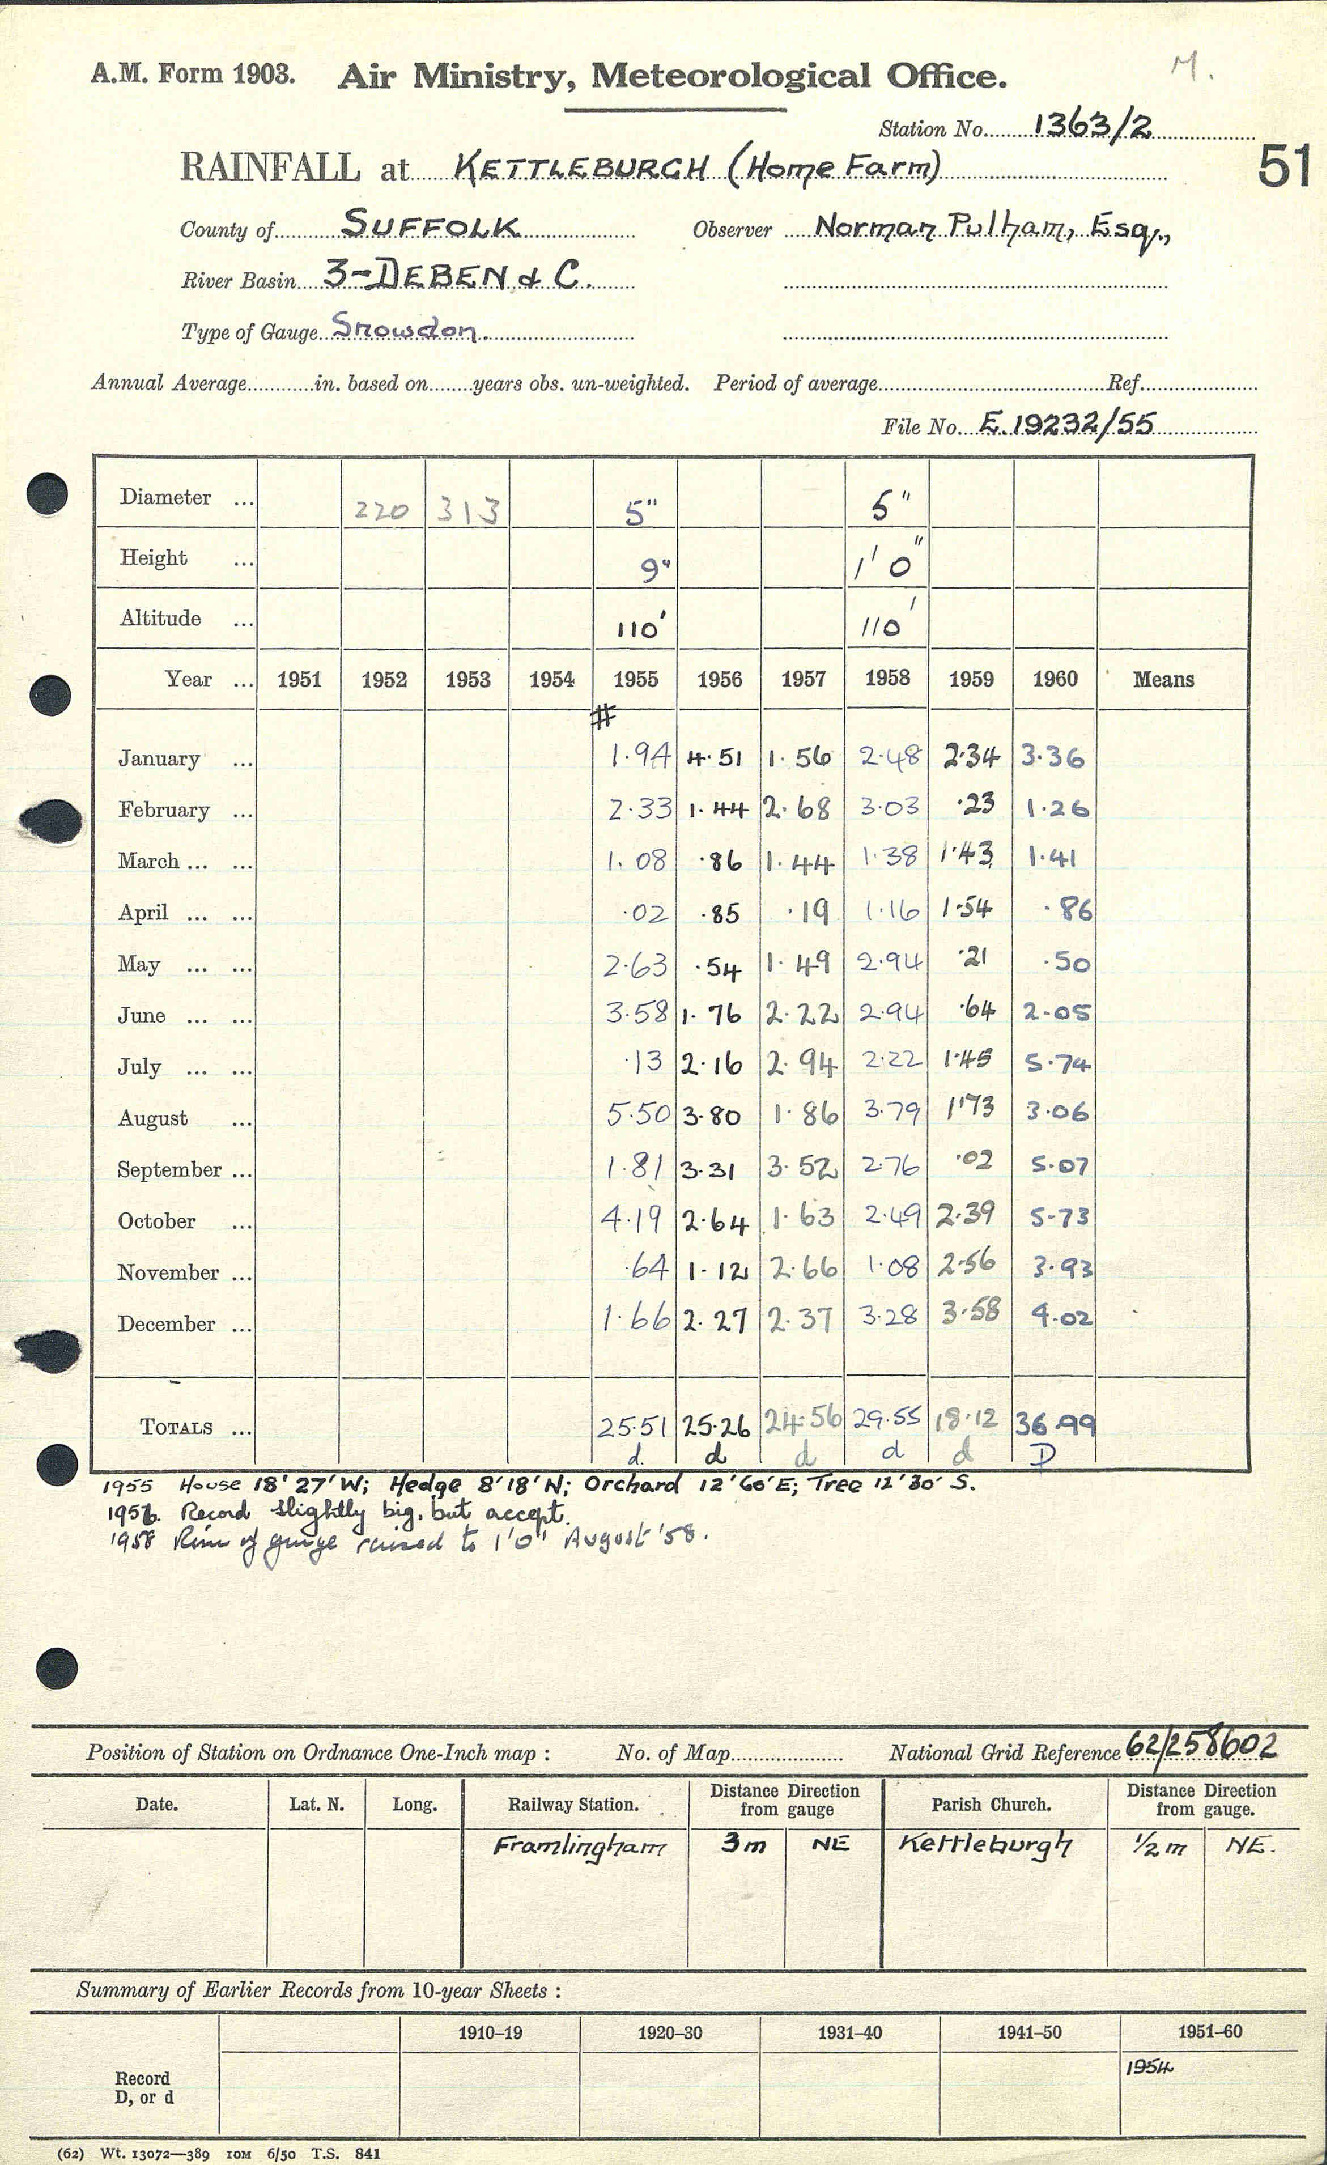 A.M. Form 1903. Air Ministry, Meteorological Office. M.
Station No. 1363/2
51
RAINFALL at KETTLEBURGH (Home Farm)
County of SUFFOLK Observer Norman Pulham, Esq.,
River Basin 3-DEBEN & C.
Type of Gauge Snowdon.
Annual Average in. based on years obs. un-weighted. Period of average Ref.
File No. E.19232/55
Diameter ... 220 313 5" 5"
Height ... 9" 1' 0"
Altitude ... 110' 110'
Year ... 1951 1952 1953 1954 1955 1956 1957 1958 1959 1960 Means
#
January ... 1.94 4.51 1.56 2.48 2.34 3.36
February ... 2.33 1.44 2.68 3.03 .23 1.26
March ... ... 1.08 .86 1.44 1.38 1.43 1.41
April ... ... .02 .85 .19 1.16 1.54 .86
May ... ... 2.63 .54 1.49 2.94 .21 .50
June ... ... 3.58 1.76 2.22 2.94 .64 2.05
July ... ... .13 2.16 2.94 2.22 1.45 5.74
August ... 5.50 3.80 1.86 3.79 1.73 3.06
September ... 1.81 3.31 3.52 2.76 .02 5.07
October ... 4.19 2.64 1.63 2.49 2.39 5.73
November ... .64 1.12 2.66 1.08 2.56 3.93
December ... 1.66 2.27 2.37 3.28 3.58 4.02
TOTALS ... 25.51 25.26 24.56 29.55 18.12 36.99
d. d d d d D
1955 House 18' 27'W; Hedge 8'18'N; Orchard 12'60'E; Tree 12'30'S.
1956. Record slightly big, but accept.
1958 Rim of gauge raised to 1'0" August '58.
Position of Station on Ordnance One-Inch map : No. of Map National Grid Reference 62/258602
Date. Lat. N. Long. Railway Station. Distance Direction from gauge Parish Church. Distance Direction from gauge.
Framlingham 3m NE Kettleburgh 1/2 m NE.
Summary of Earlier Records from 10-year Sheets :
1910–19 1920–30 1931–40 1941–50 1951–60
Record D, or d 1954
(62) Wt. 13072—389 10M 6/50 T.S. 841